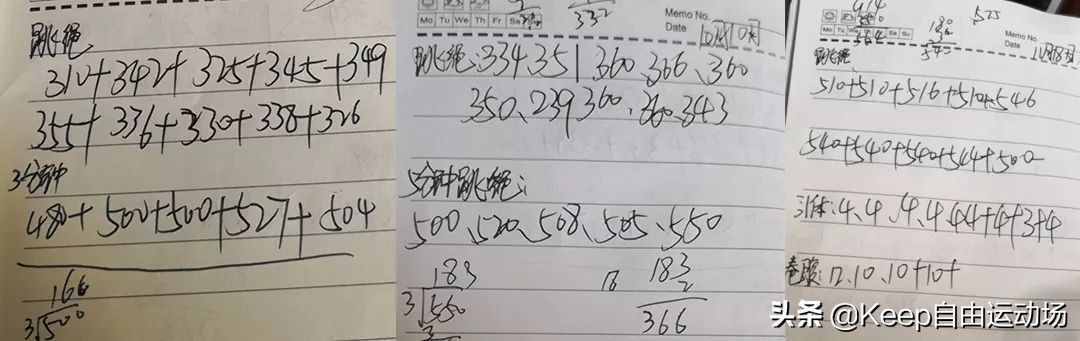 跳绳
310+342+325+345+349
355+336+330+338+326
3分钟
480+500+500+527+504
166
3√500
Mo Tu We Th Fr Sa
332
Memo No.
Date 10月10日
跳绳:334、351、360、366、360
350、239 360、360、343
5分钟跳绳:
500、520、508、505、550
183
3√550
183
2
366
525
180
540
Mo Tu
Memo No.
Date
跳绳
510+510+516+510+546
540+540+540+544+500
引体:4、4、4、4、4+4+4+3+4
卷腹:12、10、10+10+
头条 @Keep自由运动场